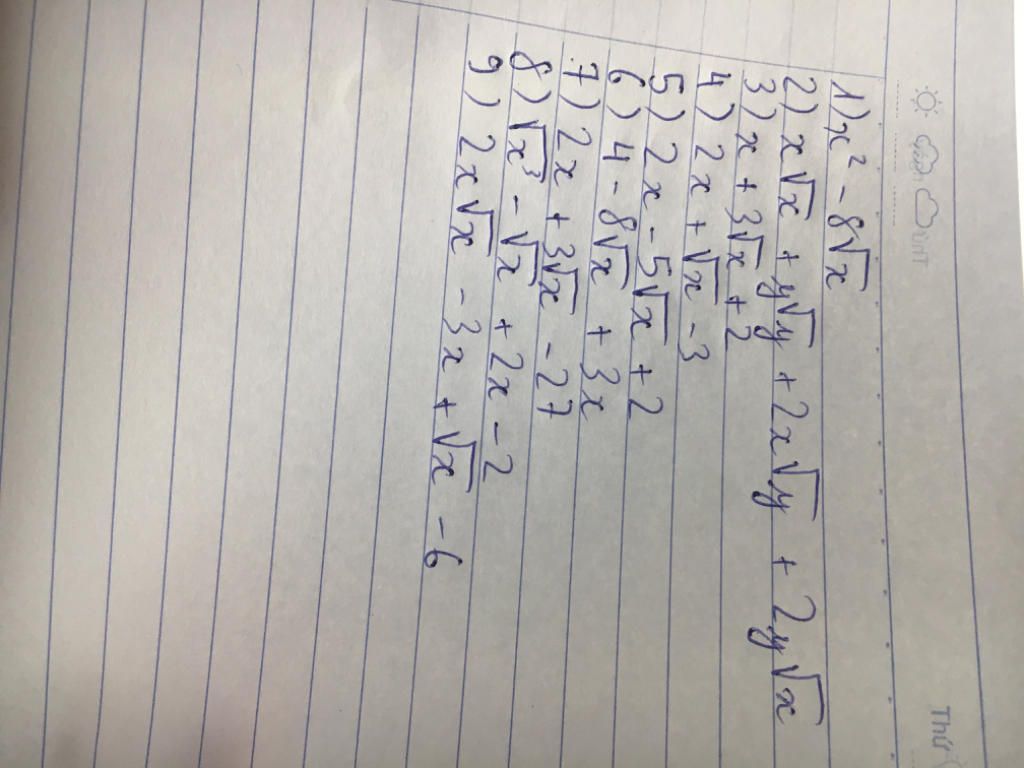 Thứ
1) x² - 8√x
2) x√x + y√y + 2x√y + 2y√x
3) x + 3√x + 2
4) 2x + √x - 3
5) 2x - 5√x + 2
6) 4 - 8√x + 3x
7) 2x + 3√x - 27
8) √x³ - √x + 2x - 2
9) 2x√x - 3x + √x - 6